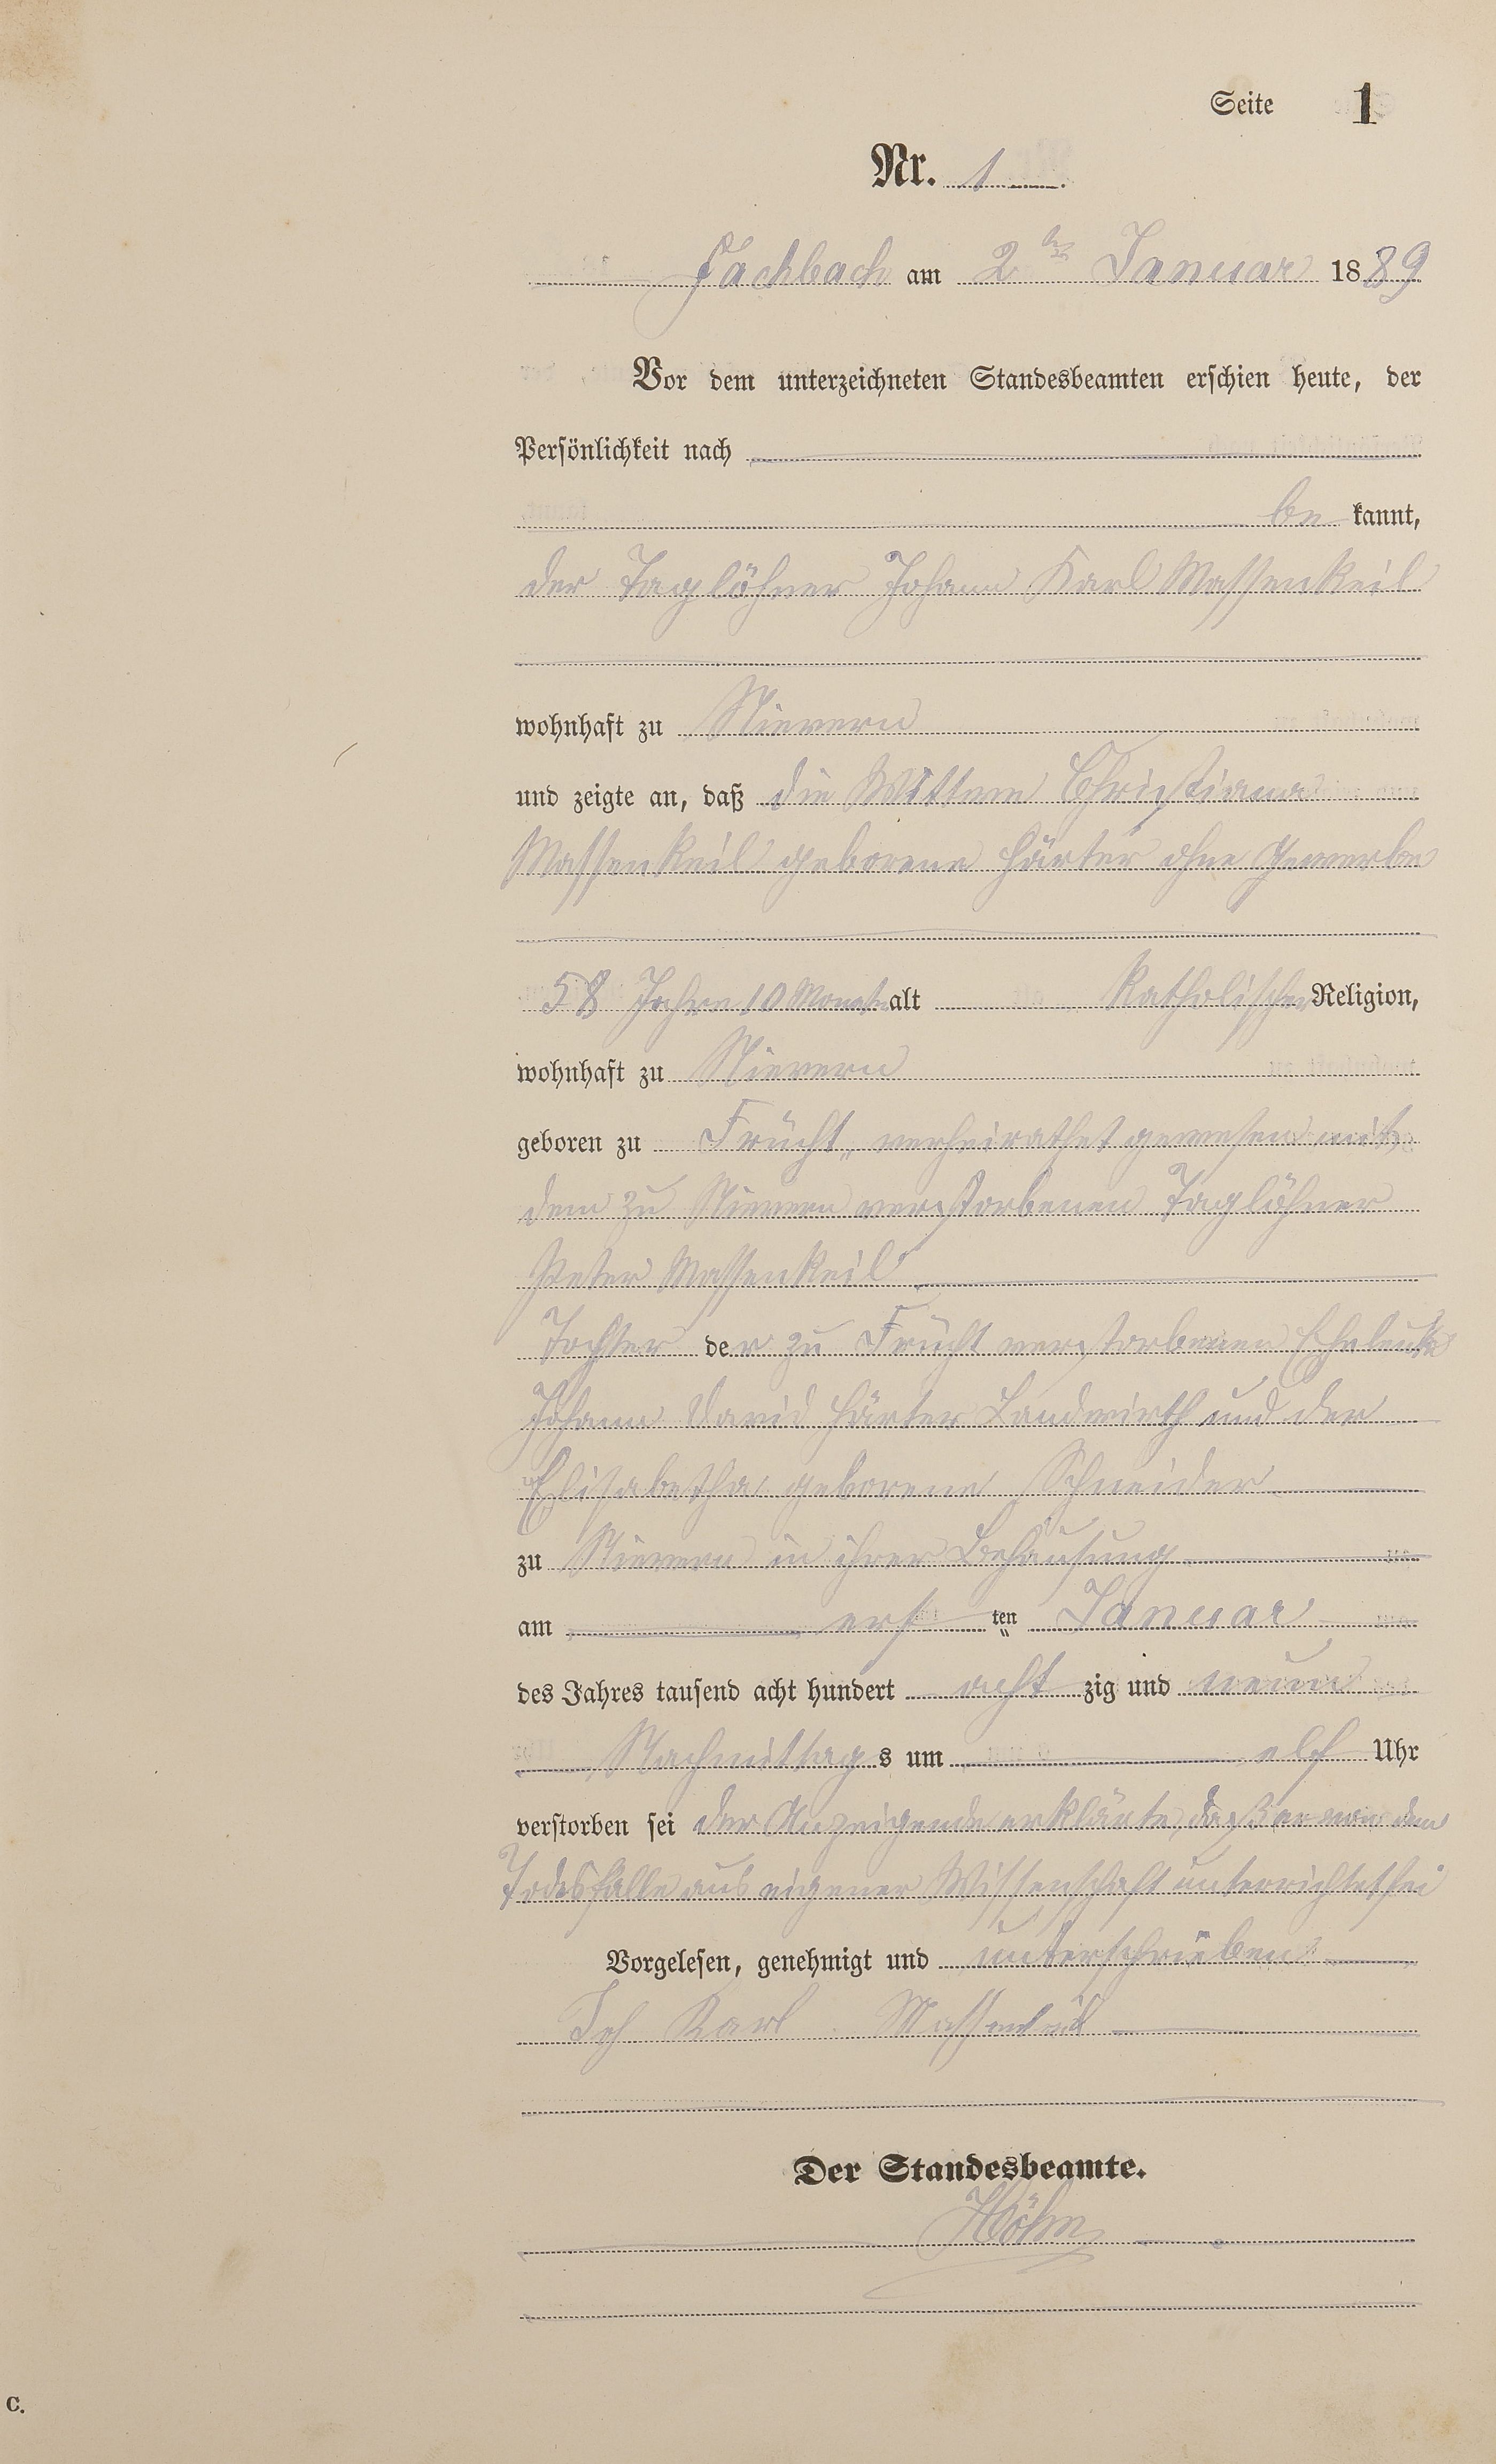 Seite 1
Nr. 1.
Fachbach am 2ten Januar 1889
Vor dem unterzeichneten Standesbeamten erschien heute, der
Persönlichkeit nach
be kannt,
der Taglöhner Johann Karl Massenkeil
wohnhaft zu Nievern
und zeigte an, daß die Wittwe Christiana
Massenkeil geborene Härter ohne Gewerbe
58 Jahre 10 Monate alt katholischer Religion,
wohnhaft zu Nievern
geboren zu Frücht, verheirathet gewesen mit
dem zu Nievern verstorbenen Taglöhner
Peter Massenkeil
Tochter der zu Frücht verstorbenen Eheleute
Johann David Härter Landwirth und der
Elisabetha geborene Schneider
zu Nievern in ihrer Behausung
am ersten Januar
des Jahres tausend acht hundert acht zig und neun
Nachmittags um elf Uhr
verstorben sei der Anzeigende erklärte, daß er von dem
Todesfalle aus eigener Wissenschaft unterrichtet sei
Vorgelesen, genehmigt und unterschrieben
Joh Karl Massenkeil
Der Standesbeamte.
Höhn
C.